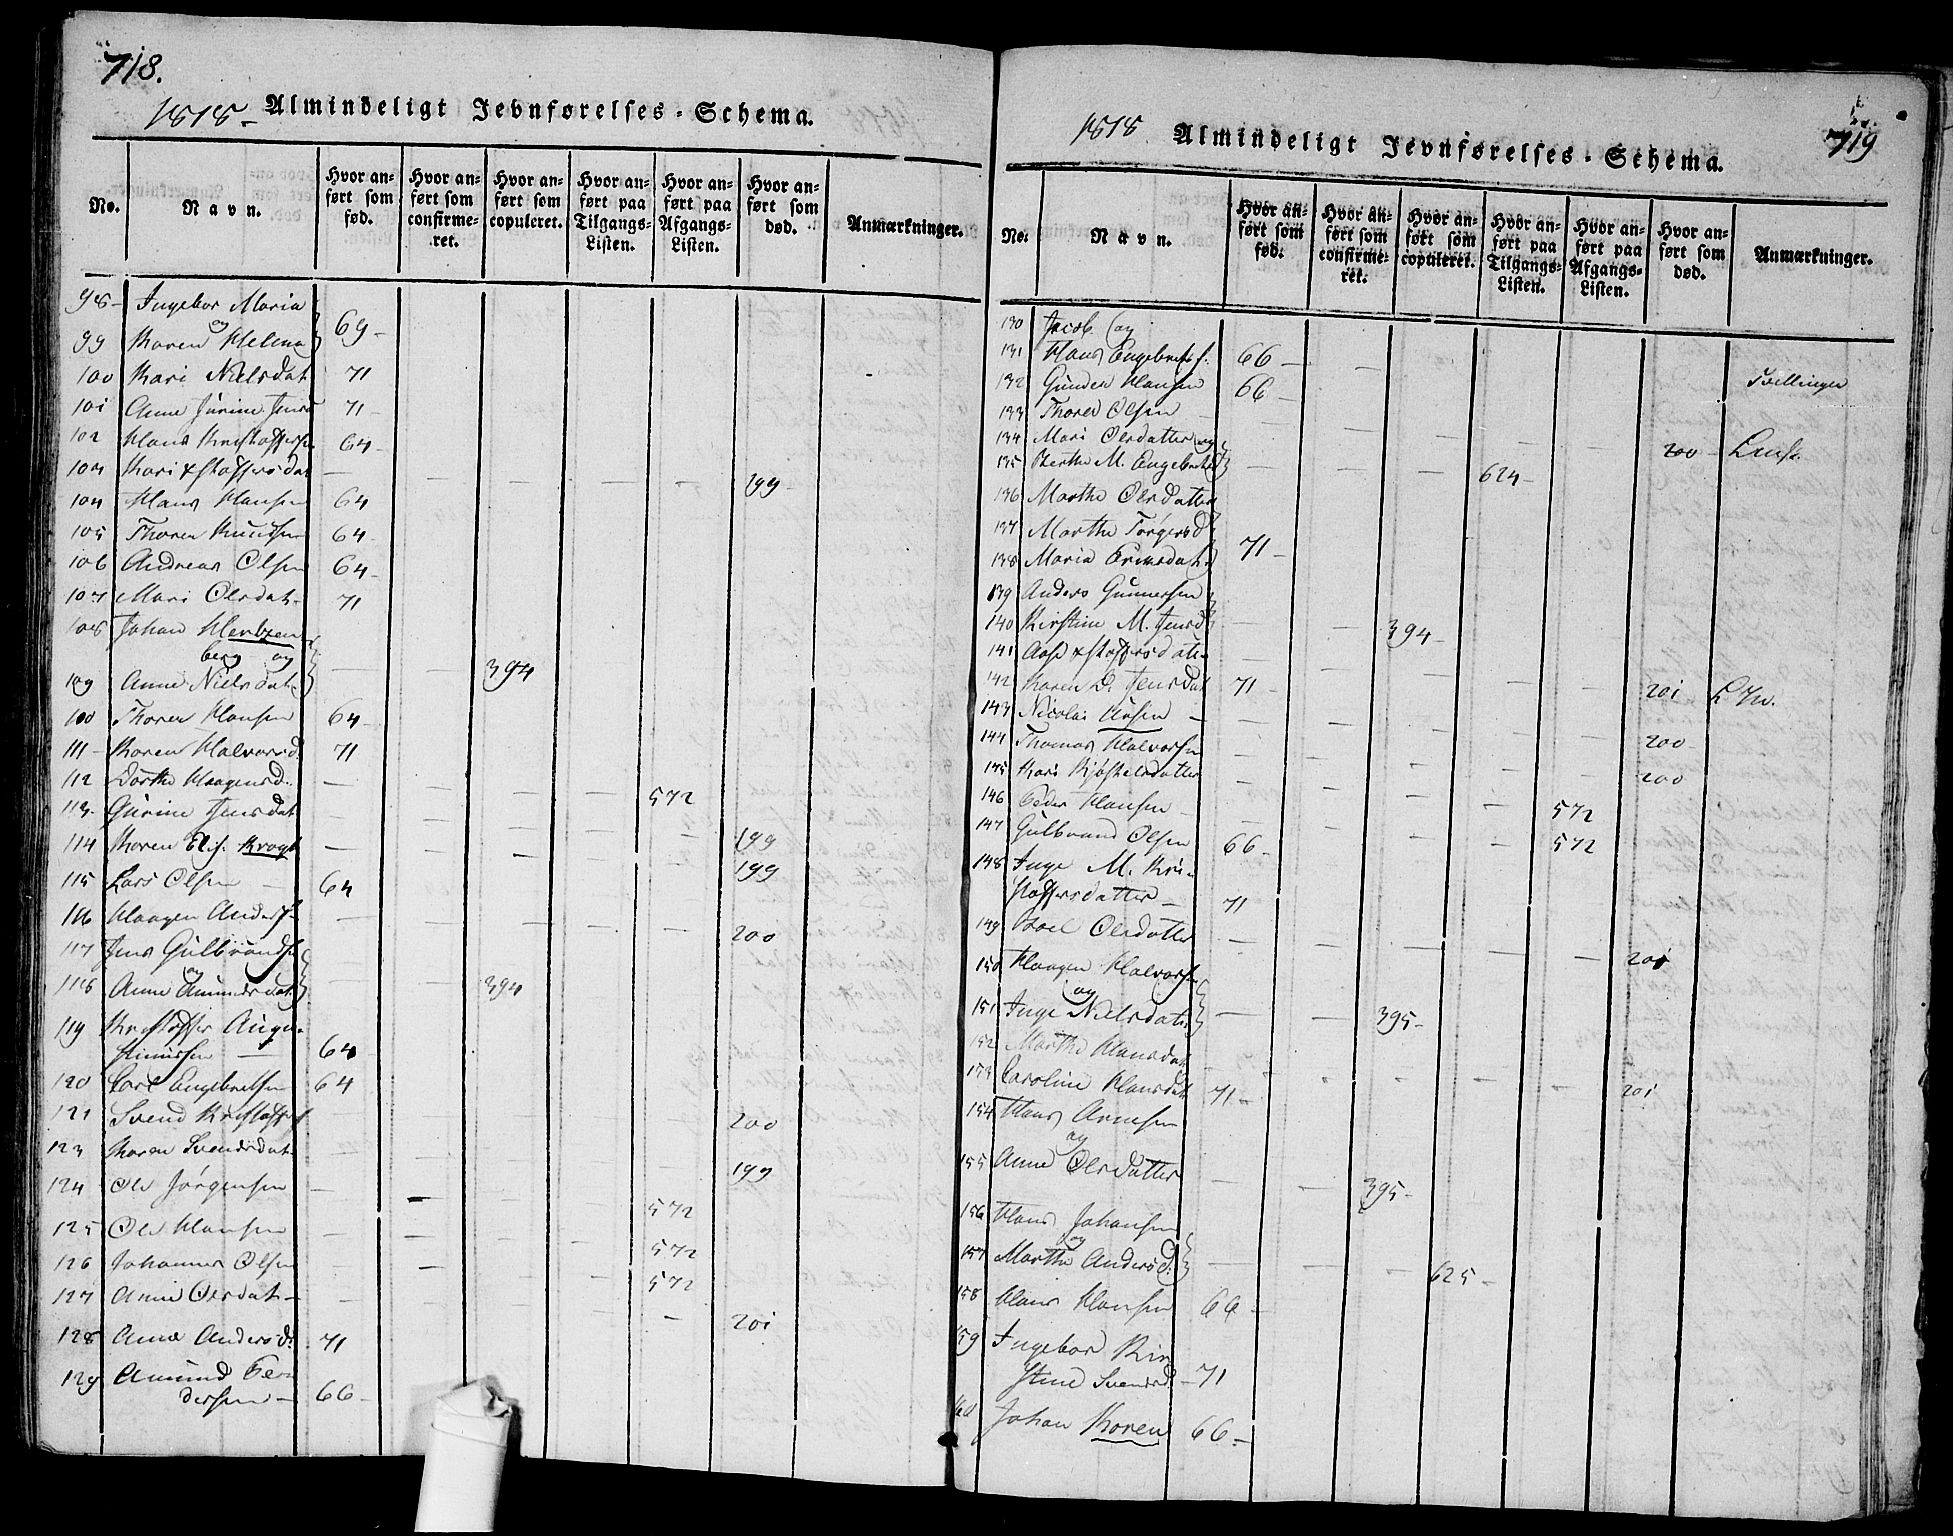 718.
1818. Almindeligt Jevnførelses-Schema.
No. Navn. Hvor anført som fød. Hvor anført som confirmeret. Hvor anført som copuleret. Hvor anført paa Tilgangs-Listen. Hvor anført paa Afgangs-Listen. Hvor anført som død. Anmærkninger.
98 Ingebor Maria
og
99 Karen Helena 69
100 Kari Nielsdat 71
101 Anne Jürine 71
102 Hans Kristoffersen 64
103 Kari xstoffersdat 199
104 Hans Hansen 64
105 Thorer Knudsen 64
106 Andreas Olsen 64
107 Mari Olesdat 71
108 Johan Hertzen
berg og
109 Anne Nielsdat 394
100 Thorer Hansen 64
111 Karen Halvorsd. 71
112 Dorthe Haagensd. 572
113. Gurine Jensdat 199
114 Karen Elis. Krogh 199
115 Lars Olsen 64
116 Haagen Anders. 200
117 Jens Gulbrandsen
og
118 Anne Amundsdat 394
119 Kristoffer Augu-
stinussen 64
120 Carl Engebretsen 64
121 Svend Kristoffers 200
123 Karen Svendsdat 199
124 Ole Jørgensen 572
125 Ole Hansen 572
126 Johannes Olsen 572
127 Anne Olesdat 201
128 Anne Andersd. 71
129 Amund Pe-
dersen 66
719
1818 Almindeligt Jevnførelses-Schema.
No. Navn. Hvor anført som fød. Hvor anført som confirmeret. Hvor anført som copuleret. Hvor anført paa Tilgangs-Listen. Hvor anført paa Afgangs-Listen. Hvor anført som død. Anmærkninger.
130 Jacob og
131 Hans Engebrets. 66 Tvillinger
132 Gunder Hansen 66
133 Thorer Olsen 200
134 Mari Olsdatter og
135 Berthe M. Engebretsd 624
136 Marthe Olesdatter
137 Marthe Torgersd
138 Maria 71
139 Anders Gunnersen
140 Kirstine M. Jensd 394
141 Aase xstoffersdatr 201
142 Karen D. Jensdat 71
143 Nicolai 200
144 Thomas Halvorsen 200
145 Kari Kjøstelsdatter 572
146 Peder Hansen 572
147 Gulbrand Olsen 66
148 Inge M. Kri-
stoffersdatter 71
149 Boel Olesdatter 201
150 Haagen Halvorsen
og
151 Inge Nielsdatr 395
152 Marthe Hansdat 201
153 Caroline Hansdat 71
154 Hans Arnesen
og
155 Anne Olesdatter 395
156 Hans Johansen
og
157 Marthe Andersd. 625
158 Hans Hansen 66
159 Ingebor Kir
stine Svendsd. 71
160 Johan Koren 66